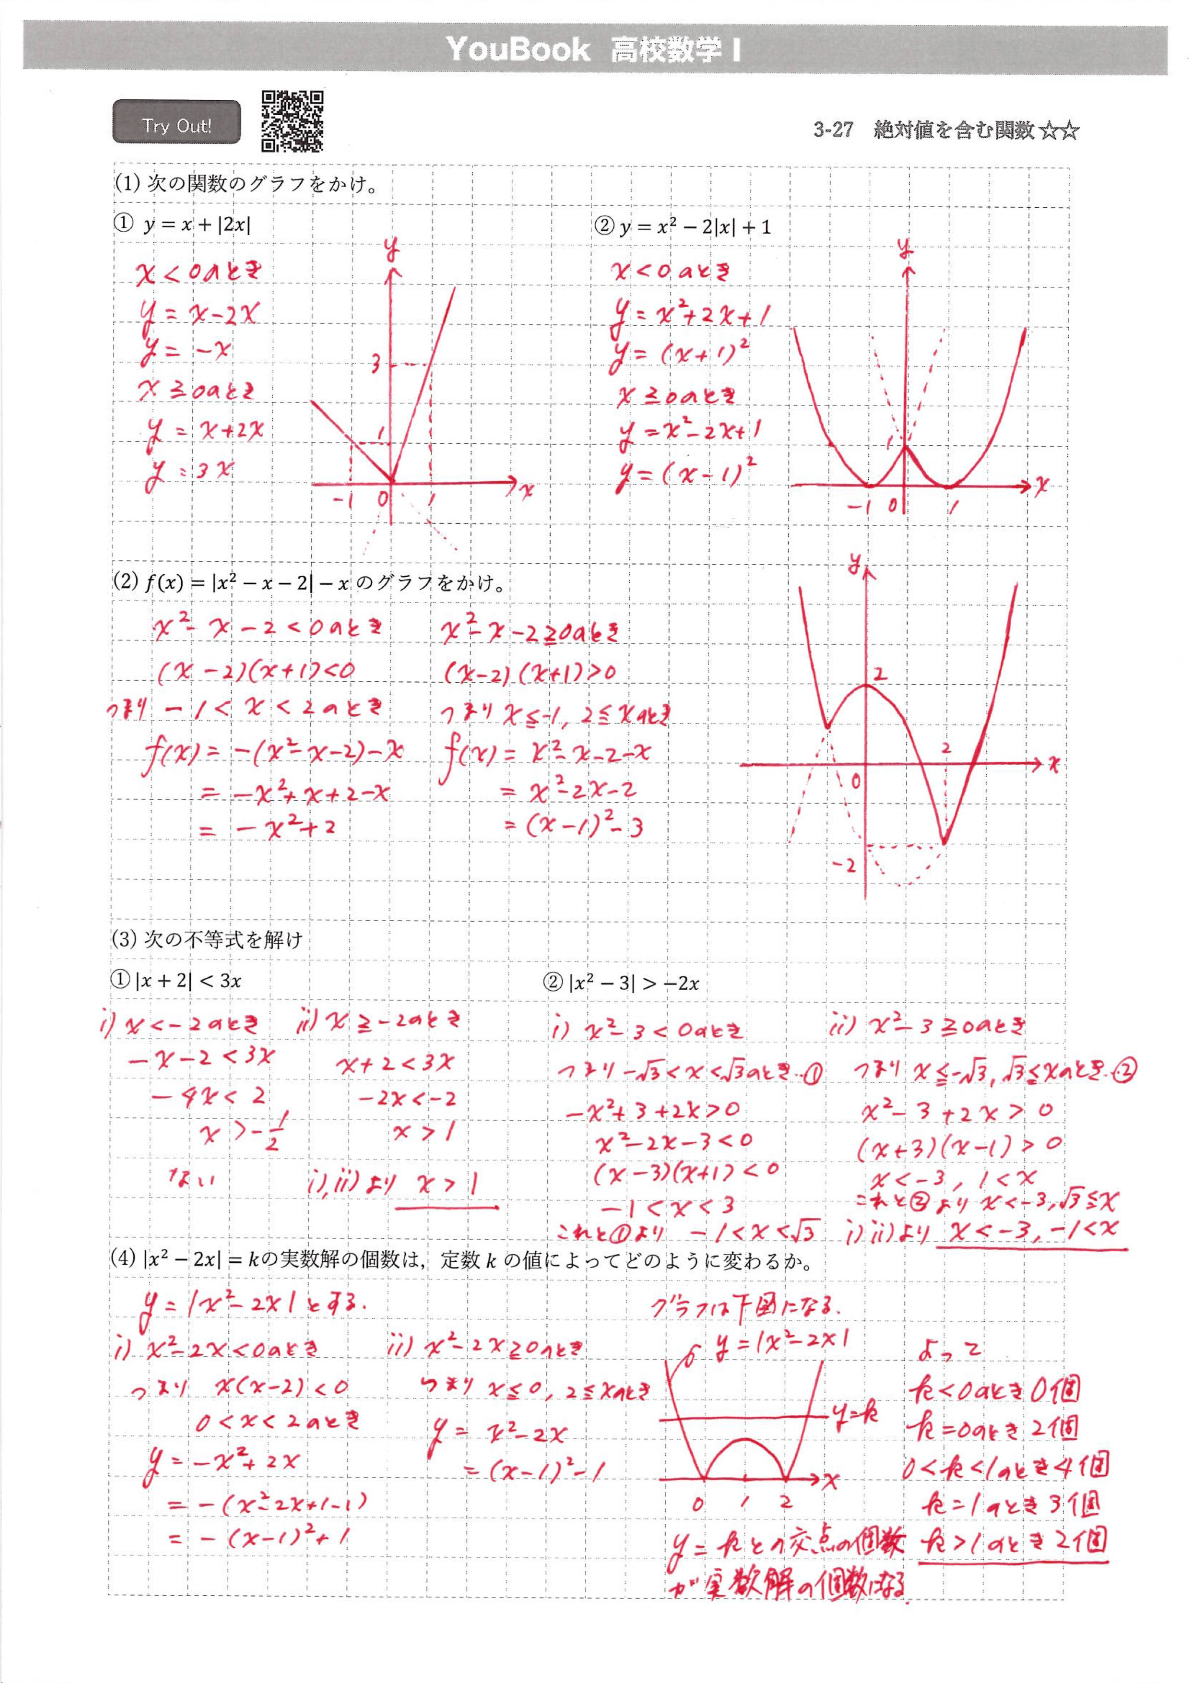 YouBook 高校数学 I
Try Out!
3-27 絶対値を含む関数☆☆
(1) 次の関数のグラフをかけ。
① y = x + |2x|
x < 0のとき
y = x-2x
y = -x
x ≧ 0のとき
y = x+2x
y = 3x
y
3
1
-1 0 1 x
② y = x² − 2|x| + 1
x < 0のとき
y = x²+2x+1
y = (x+1)²
x ≧ 0のとき
y = x²-2x+1
y = (x-1)²
y
1
-1 0 1 x
(2) f(x) = |x² − x − 2| − x のグラフをかけ。
x²- x - 2 < 0のとき
(x-2)(x+1)<0
つまり -1 < x < 2のとき
f(x) = -(x²-x-2)-x
= -x²+x+2-x
= -x²+2
x²-x-2≧0のとき
(x-2)(x+1)>0
つまり x≦-1, 2≦xのとき
f(x) = x²-x-2-x
= x²-2x-2
= (x-1)²-3
y
2
2
0 x
-2
(3) 次の不等式を解け
① |x + 2| < 3x
i) x<-2のとき
-x-2<3x
-4x<2
x>-1/2
ない
ii) x≧-2のとき
x+2<3x
-2x<-2
x>1
i),ii)より x>1
② |x² − 3| > −2x
i) x²-3<0のとき
つまり -√3<x<√3のとき…①
-x²+3+2x>0
x²-2x-3<0
(x-3)(x+1)<0
-1<x<3
これと①より -1<x<√3
ii) x²-3≧0のとき
つまり x≦-√3, √3≦xのとき…②
x²-3+2x>0
(x+3)(x-1)>0
x<-3, 1<x
これと②より x<-3, √3≦x
i)ii)より x<-3, -1<x
(4) |x² − 2x| = kの実数解の個数は，定数 k の値によってどのように変わるか。
y = |x²-2x|とする.
i) x²-2x<0のとき
つまり x(x-2)<0
0<x<2のとき
y = -x²+2x
= -(x²-2x+1-1)
= -(x-1)²+1
ii) x²-2x≧0のとき
つまり x≦0, 2≦xのとき
y = x²-2x
= (x-1)²-1
グラフは下図になる.
y=|x²-2x|
y=k
x
0 1 2
y=kとの交点の個数
が実数解の個数になる.
よって
k<0のとき 0個
k=0のとき 2個
0<k<1のとき 4個
k=1のとき 3個
k>1のとき 2個